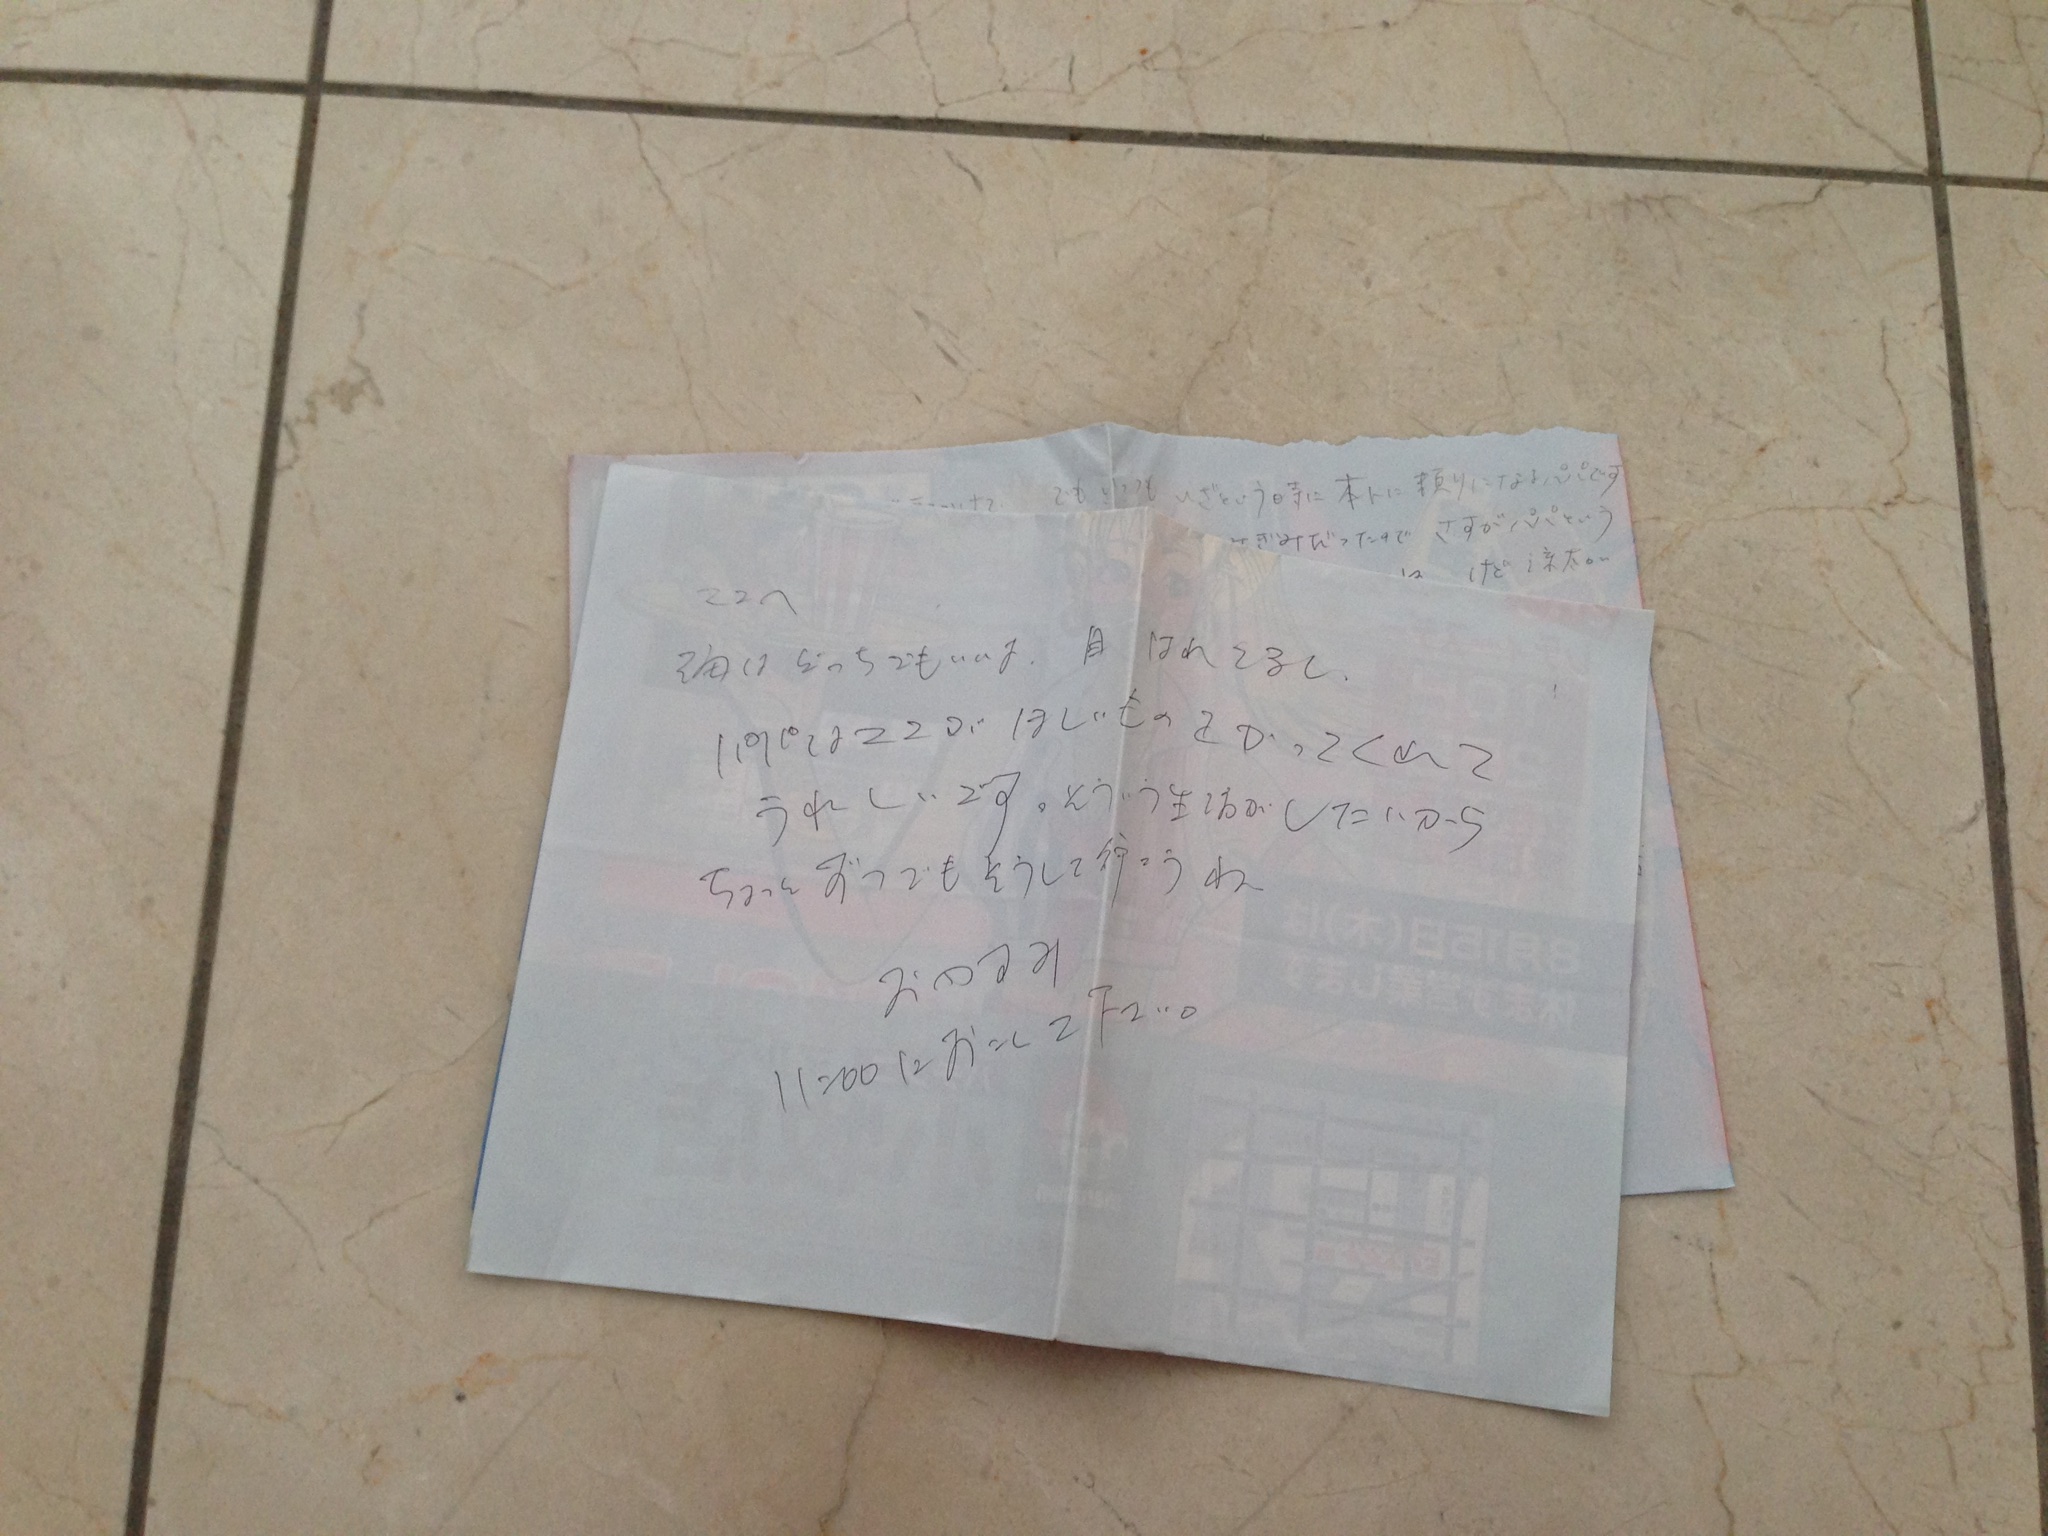 でも いざという時に 本トに 頼りになるパパです
ぎみだったので さすがパパという
けど 涼太の
ママへ
海は どっちでもいいよ. 目 はれてるし.
パパはママが ほしいものをかってくれて
うれしいです。そういう生活がしたいから
ちょっとずつでもそうして行こうね
おやすみ
11:00におこして下さい。
8月15日(木)は
休まず営業します